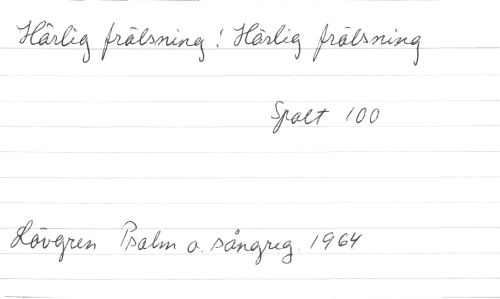 Härlig frälsning! Härlig frälsning
Spalt 100
Lövgren Psalm o. sångreg. 1964